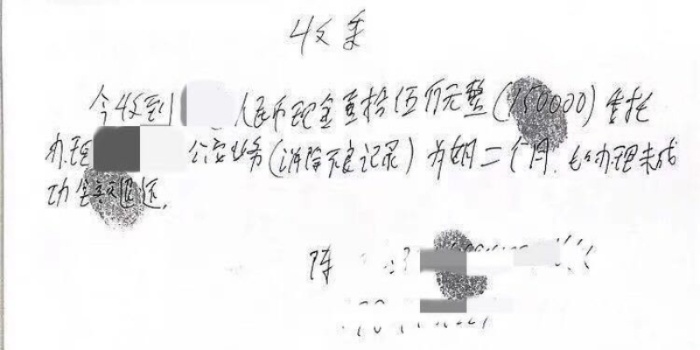 收条
今收到 人民币现金壹拾伍万元整(150000)委托
办理 公安业务(消除不良记录)为期二个月.如办理未成
功全款退还.
陈